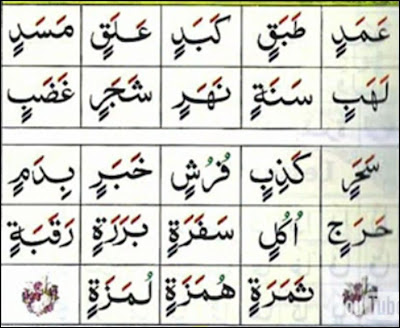 عَمَدٍ طَبَقٍ كَبَدٍ عَلَقٍ مَسَدٍ
لَهَبٍ سَنَةٍ نَهَرٍ شَجَرٍ غَضَبٍ
سَحَرٍ كَذِبٍ فُرُشٍ خَبَرٍ بِدَمٍ
حَرَجٍ اُكُلٍ سَفَرَةٍ بَرَرَةٍ رَقَبَةٍ
ثَمَرَةٍ هُمَزَةٍ لُمَزَةٍ